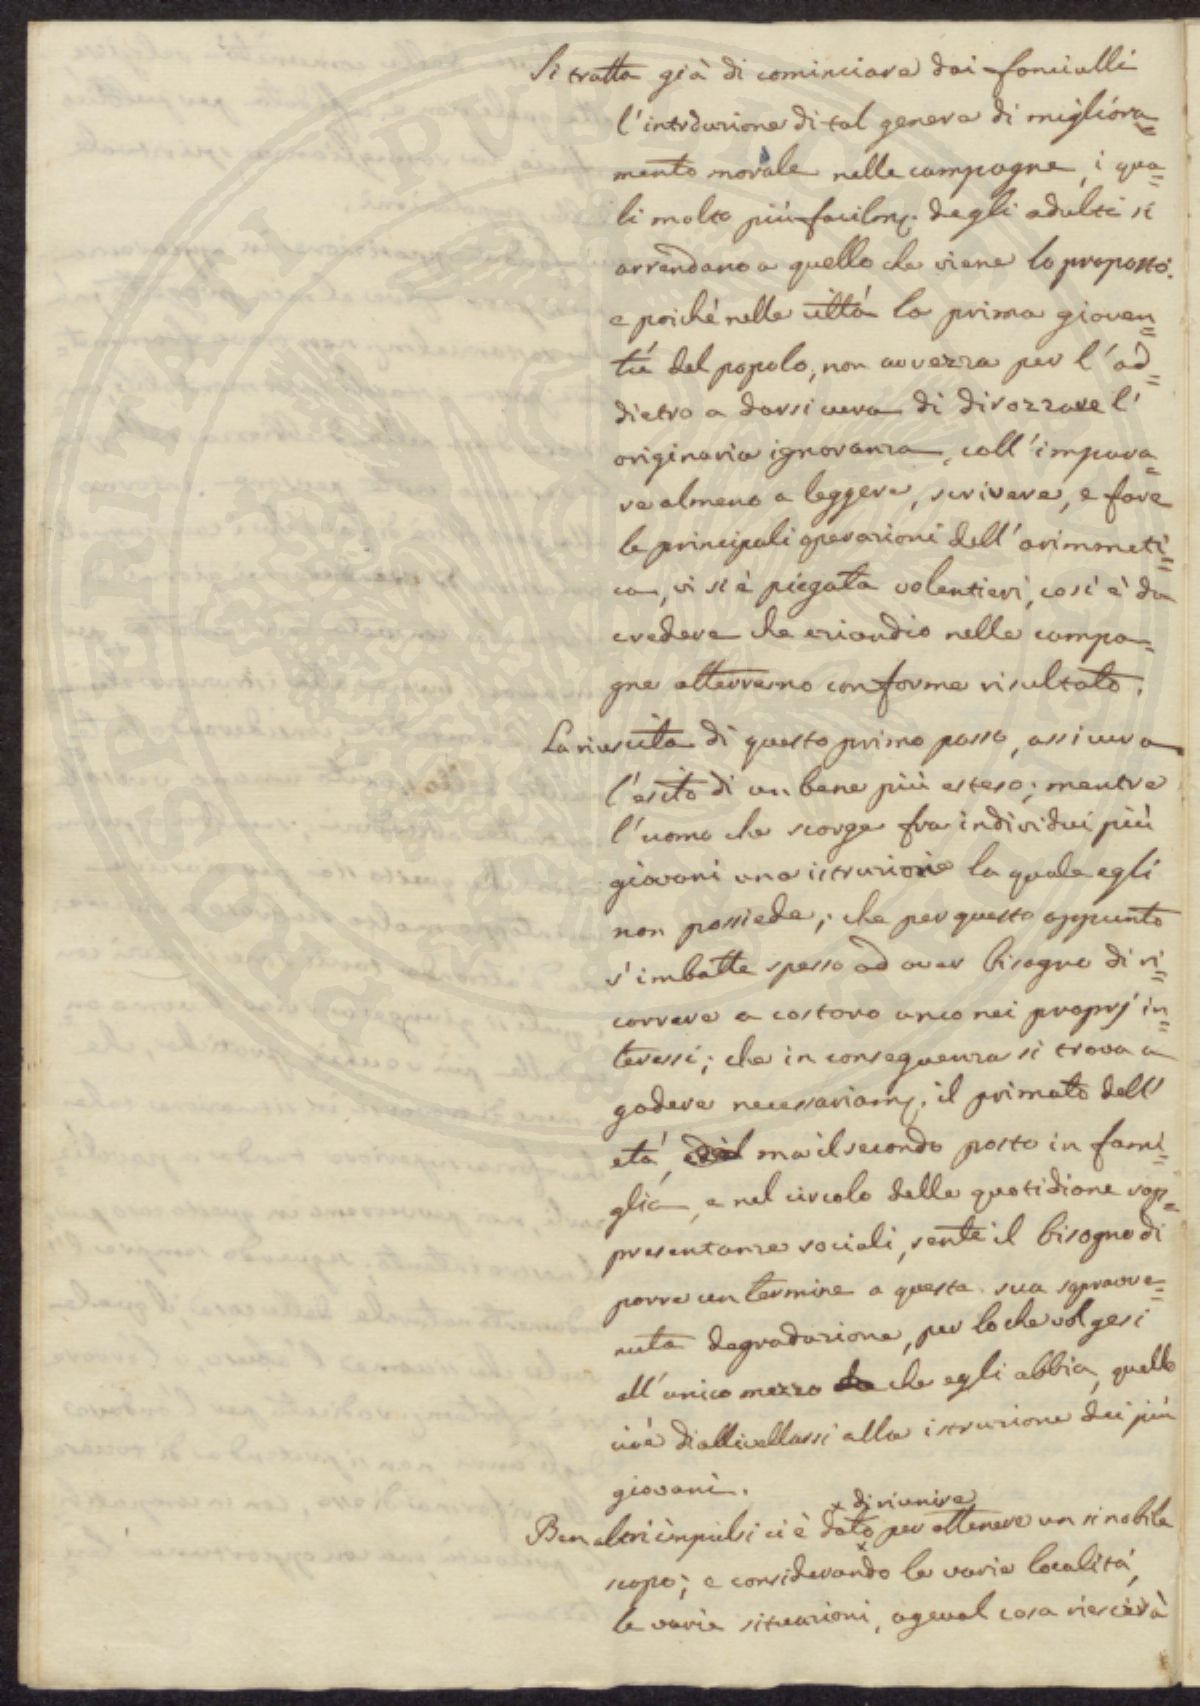 Si tratta già di cominciare dai fanciulli
l'introduzione di tal genere di migliora=
mento morale nelle campagne, i qua=
li molto più facilm. degli adulti si
arrendano a quello che viene lo proposto.
e poiché nelle città la prima gioven=
tù del popolo, non avvezza per l'ad=
dietro a darsi cura di dirozzare l'
originaria ignoranza, coll'impara=
re almeno a leggere, scrivere, e fare
le principali operazioni dell'arimmeti=
ca, vi si è piegata volentieri, così è da
credere che eziandio nelle campa=
gne otterremo conforme risultato.
La riuscita di questo primo passo, assicura
l'esito di un bene più esteso; mentre
l'uomo che scorge fra individui più
giovani una istruzione la quale egli
non possiede; che per questo appunto
s'imbatte spesso ad aver bisogno di ri=
correre a costoro anco nei proprj in=
teressi; che in conseguenza si trova a
godere necessariam. il primato dell'
età, ma il secondo posto in fami=
glia, e nel circolo delle quotidiane rap=
presentanze sociali, sente il bisogno di
porre un termine a questa sua sopravve=
nuta degradazione, per lo che volgesi
all'unico mezzo che egli abbia, quello
cioè di allivellarsi alla istruzione dei più
giovani.
x di riunire
Ben altri impulsi ci è dato per ottenere un si nobile
scopo; e considerando le varie località,
le varie situazioni, agevol cosa riescirà